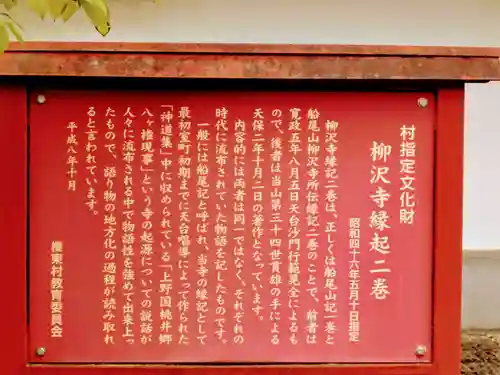 村指定文化財
柳沢寺縁起二巻
昭和四十六年五月十日指定
柳沢寺縁起二巻は、正しくは船尾山記一巻と
船尾山柳沢寺所伝縁記二巻のことで、前者は
寛政五年八月五日天台沙門行範晃全によるも
ので、後者は当山第三十四世貫雄の手による
天保二年十月二日の著作となっています。
内容的には両者は同一ではなく、それぞれの
時代に流布されていた物語を記したものです。
一般には船尾記と呼ばれ、当寺の縁記として
最初室町初期までに天台唱導によって作られた
「神道集」中に収められている「上野国桃井郷
八ヶ権現事」という寺の起源についての説話が
人々に流布される中で物語性を強めて出来上っ
たもので、語り物の地方化の過程が読み取れ
ると言われています。
平成八年十月
榛東村教育委員会